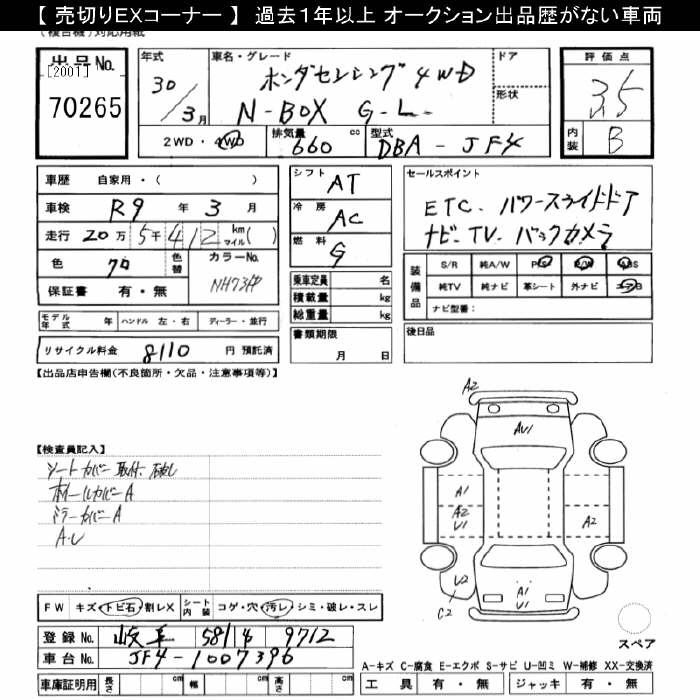 【 売切りEXコーナー 】 過去1年以上 オークション出品歴がない車両
(複合機)対応用紙
出品No.
[2001]
70265
年式
30/3月
車名・グレード
ホンダセンシング 4WD
N-BOX G-L-
ドア
形状
2WD・4WD
排気量 660 cc
型式 DBA-JF4
評価点
3.5
内装 B
車歴 自家用・( )
車検 R9 年 3 月
走行 20万 5千 412 km マイル( )
色 クロ 色替 カラーNo.
保証書 有・無 NH731P
モデル年式 年 ハンドル 左・右 ディーラー・並行
リサイクル料金 8110 円 預託済
シフト AT
冷房 AC
燃料 G
乗車定員 名
積載量 kg
総重量 kg
書類期限
月 日
セールスポイント
ETC. パワースライドドア
ナビ・TV. バックカメラ
装備品
S/R 純A/W P/S P/W ABS
純TV 純ナビ 革シート 外ナビ エアB
ナビ型番:
後日品
【出品店申告欄(不良箇所・欠品・注意事項等)】
【検査員記入】
シートカバー取付.
ホイールカバーA
ミラーカバーA
A.U
FW キズ・トビ石・割レX シート内装 コゲ・穴・汚レ・シミ・破レ・スレ
登録No. 岐阜 581 9712
車台No. JF4-1007396
車庫証明用 長さ cm 幅 cm 高さ cm
A2
AU1
A1
A2
U1
A2
U2
C2
A1
U1
スペア
A-キズ C-腐食 E-エクボ S-サビ U-凹ミ W-補修 XX-交換済
工具 有・無 ジャッキ 有・無